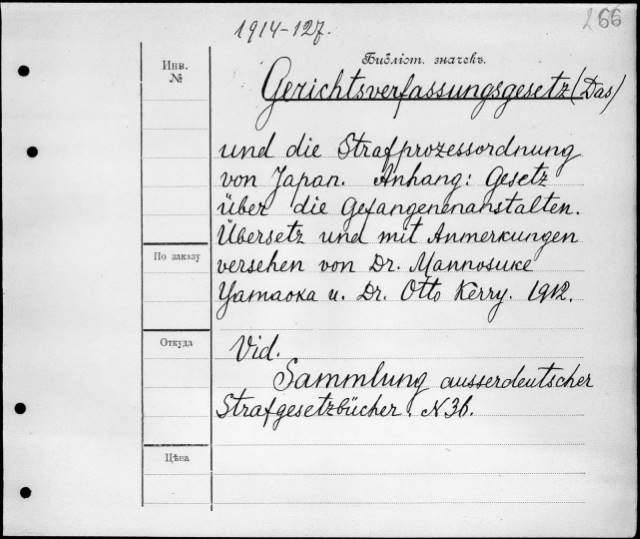 266
1914-127.
Инв.
№
Библіот. значекъ.
Gerichtsverfassungsgesetz (Das)
und die Strafprozessordnung
von Japan. Anhang: Gesetz
über die Gefangenenanstalten.
Übersetz und mit Anmerkungen
По заказу
versehen von Dr. Mannosuke
Yamaoka u. Dr. Otto Kerry. 1912.
Откуда
Vid.
Sammlung ausserdeutscher
Strafgesetzbücher. N 36.
Цѣна